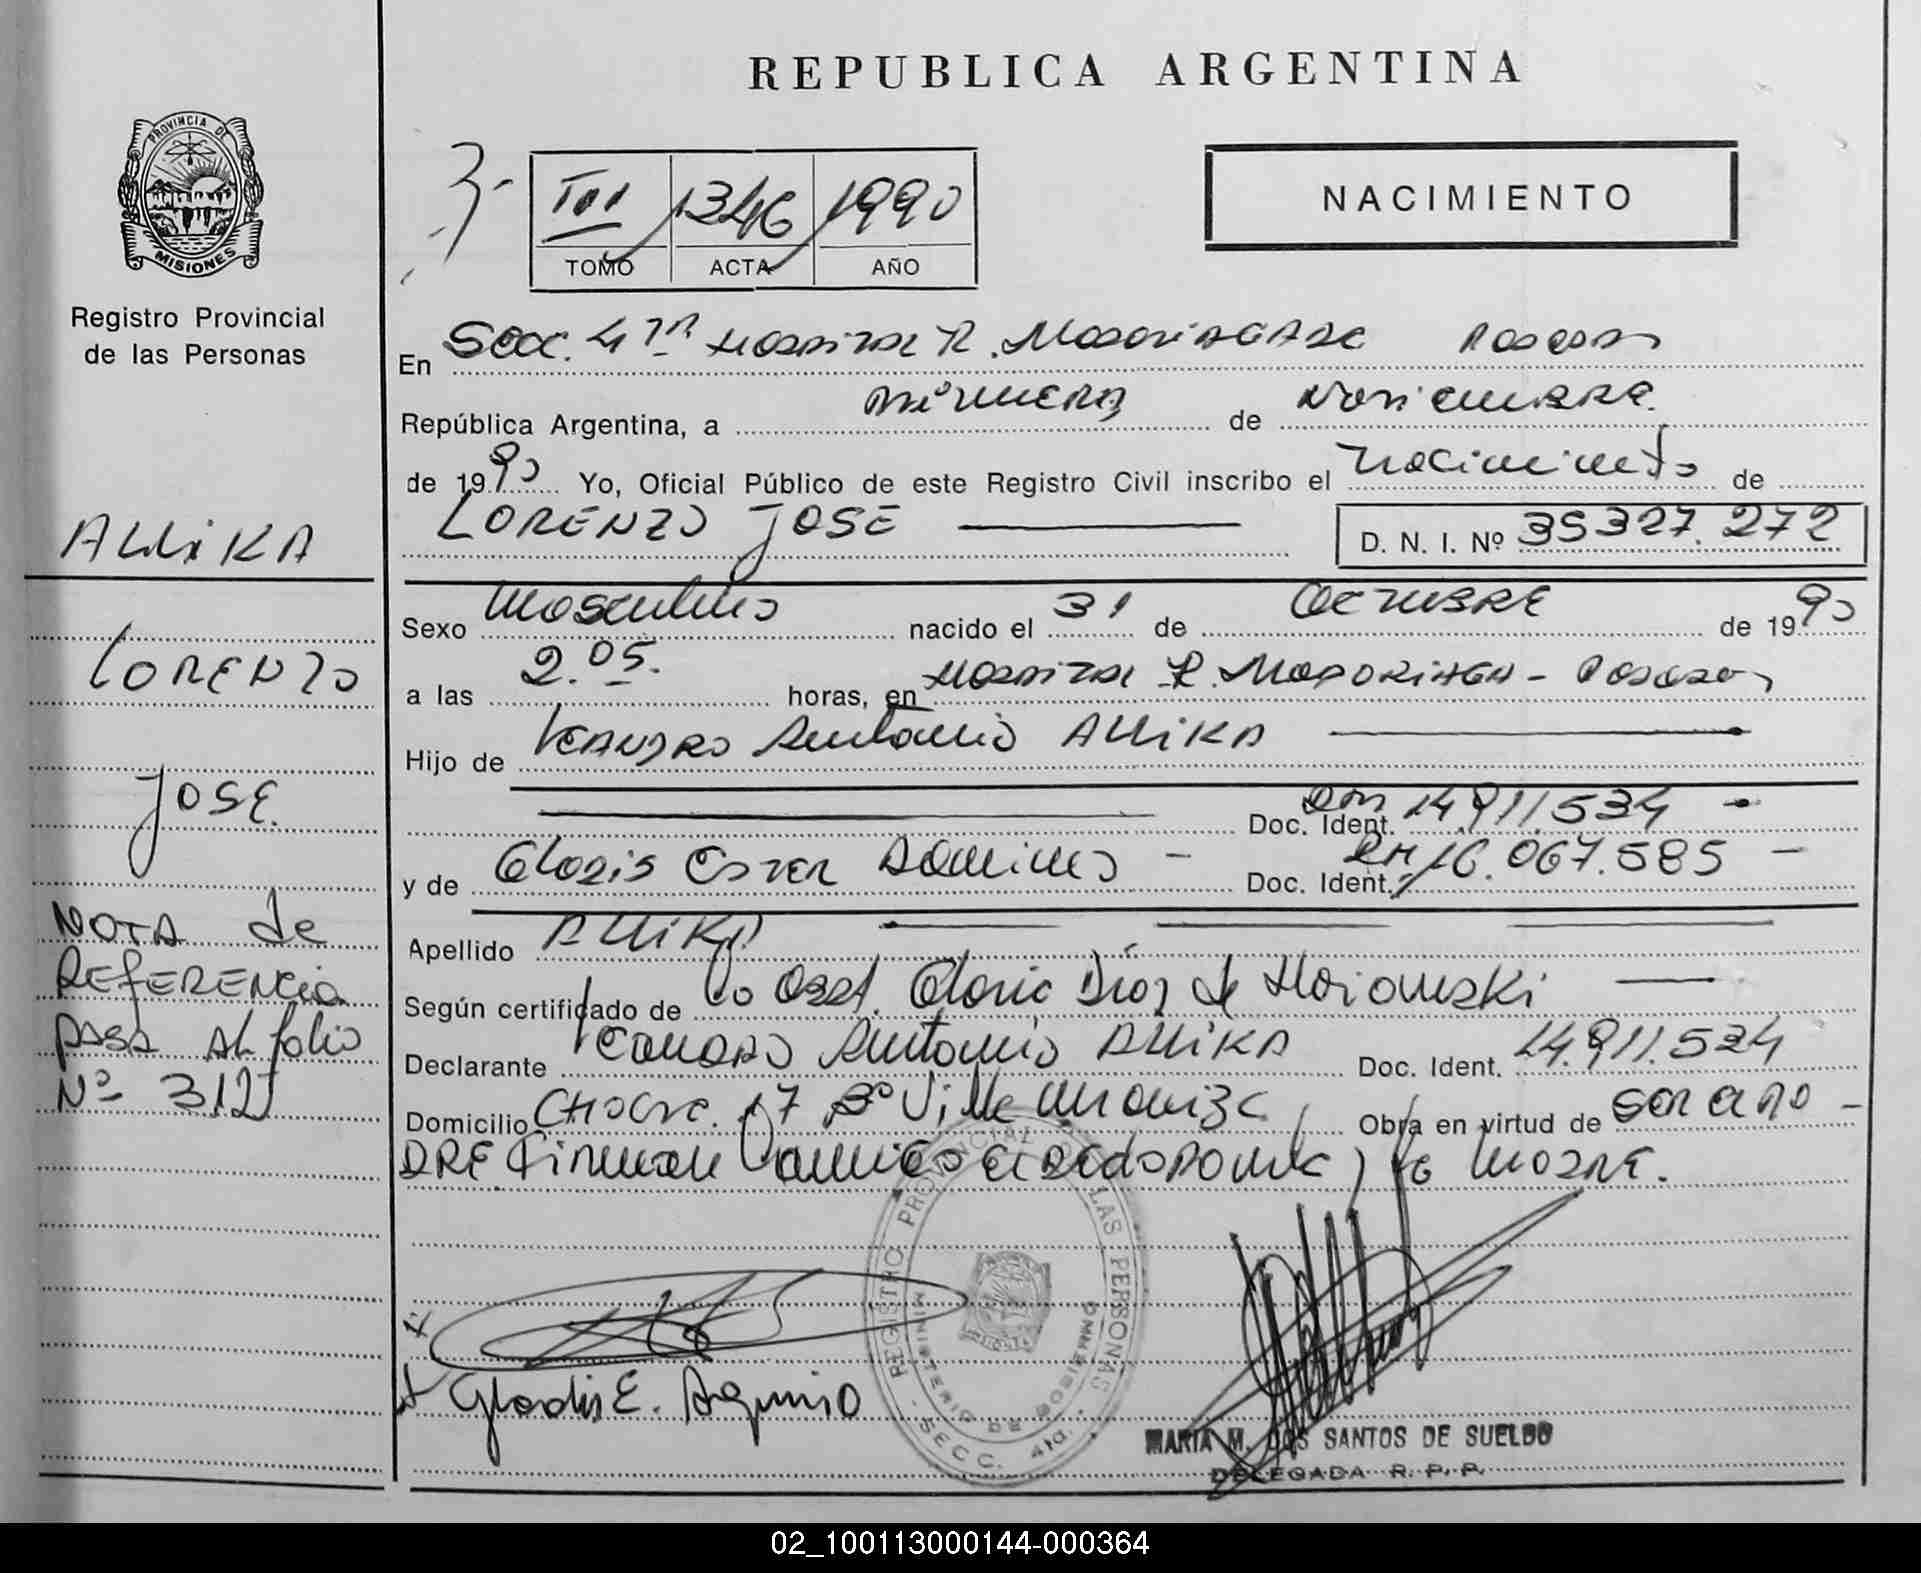 REPUBLICA ARGENTINA
PROVINCIA DE
MISIONES
Registro Provincial
de las Personas
3-
III 1346 1990
TOMO ACTA AÑO
NACIMIENTO
En Secc. 4ta Hospital R. Madariaga Posadas
República Argentina, a primero de Noviembre
de 1990 Yo, Oficial Público de este Registro Civil inscribo el nacimiento de
LORENZO JOSE D. N. I. Nº 35327.272
Sexo Masculino nacido el 31 de Octubre de 1990
a las 2.05. horas, en Hospital R. Madariaga - Posadas
Hijo de Leandro Antonio ALLIKA
Doc. Ident. DNI 14.911534 -
y de Gladis Ester Aquino - Doc. Ident. 16.067.585 -
Apellido ALLIKA
Según certificado de la Obst. Gloria Díaz de
Declarante Leandro Antonio ALLIKA Doc. Ident. 14.911.534
Domicilio 17 Villa Obra en virtud de ser el PA-
DRE Firman el declarante y la madre.
ALLIKA
LORENZO
JOSE
NOTA de
REFERENCIA
PASA AL folio
Nº 312
REGISTRO PROVINCIAL DE LAS PERSONAS
MINISTERIO DE GOBIERNO
SECC. 4ta.
Gladis E. Aquino
MARIA M. DOS SANTOS DE SUELDO
DELEGADA R. P. P.
02_100113000144-000364